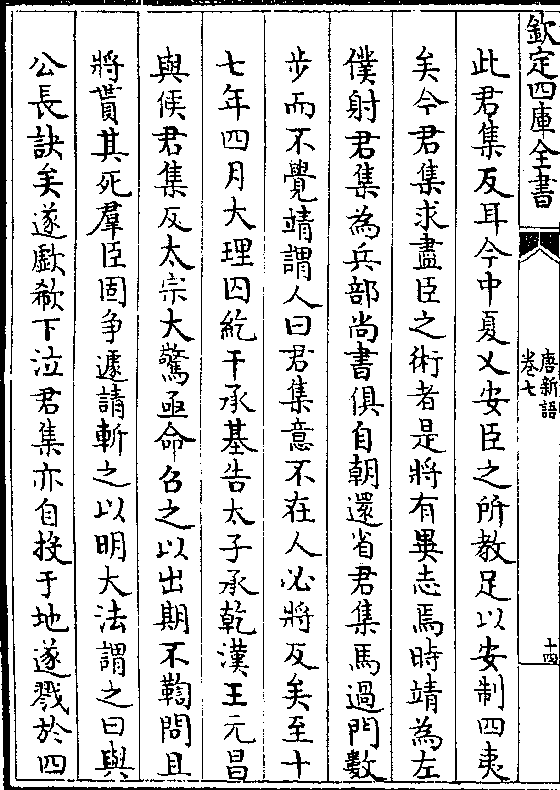 欽定四庫全書
唐新語
卷七
十四
此君集反耳今中夏乂安臣之所教足以安制四夷
矣今君集求盡臣之術者是將有異志焉時靖為左
僕射君集為兵部尚書俱自朝還省君集馬過門數
步而不覺靖謂人曰君集意不在人必將反矣至十
七年四月大理囚紇干承基告太子承乾漢王元昌
與侯君集反太宗大驚亟命召之以出期不鞫問且
將貰其死羣臣固争遽請斬之以明大法謂之曰與
公長訣矣遂歔欷下泣君集亦自投于地遂戮於四